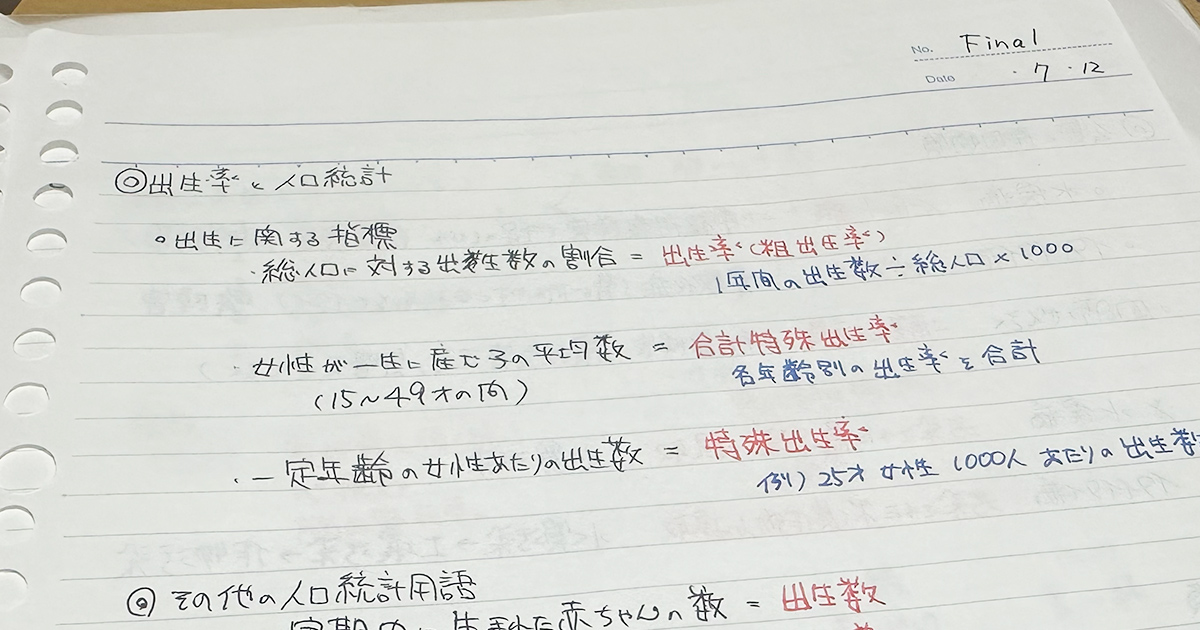 No. Final
Date ・7・12
◎出生率と人口統計
○出生に関する指標
・総人口に対する出生数の割合 = 出生率(粗出生率)
1年間の出生数÷総人口×1000
・女性が一生に産む子の平均数 = 合計特殊出生率
(15~49才の間) 各年齢別の出生率を合計
・一定年齢の女性あたりの出生数 = 特殊出生率
例)25才女性1000人あたりの出生数
◎その他の人口統計用語
生まれた赤ちゃんの数 = 出生数